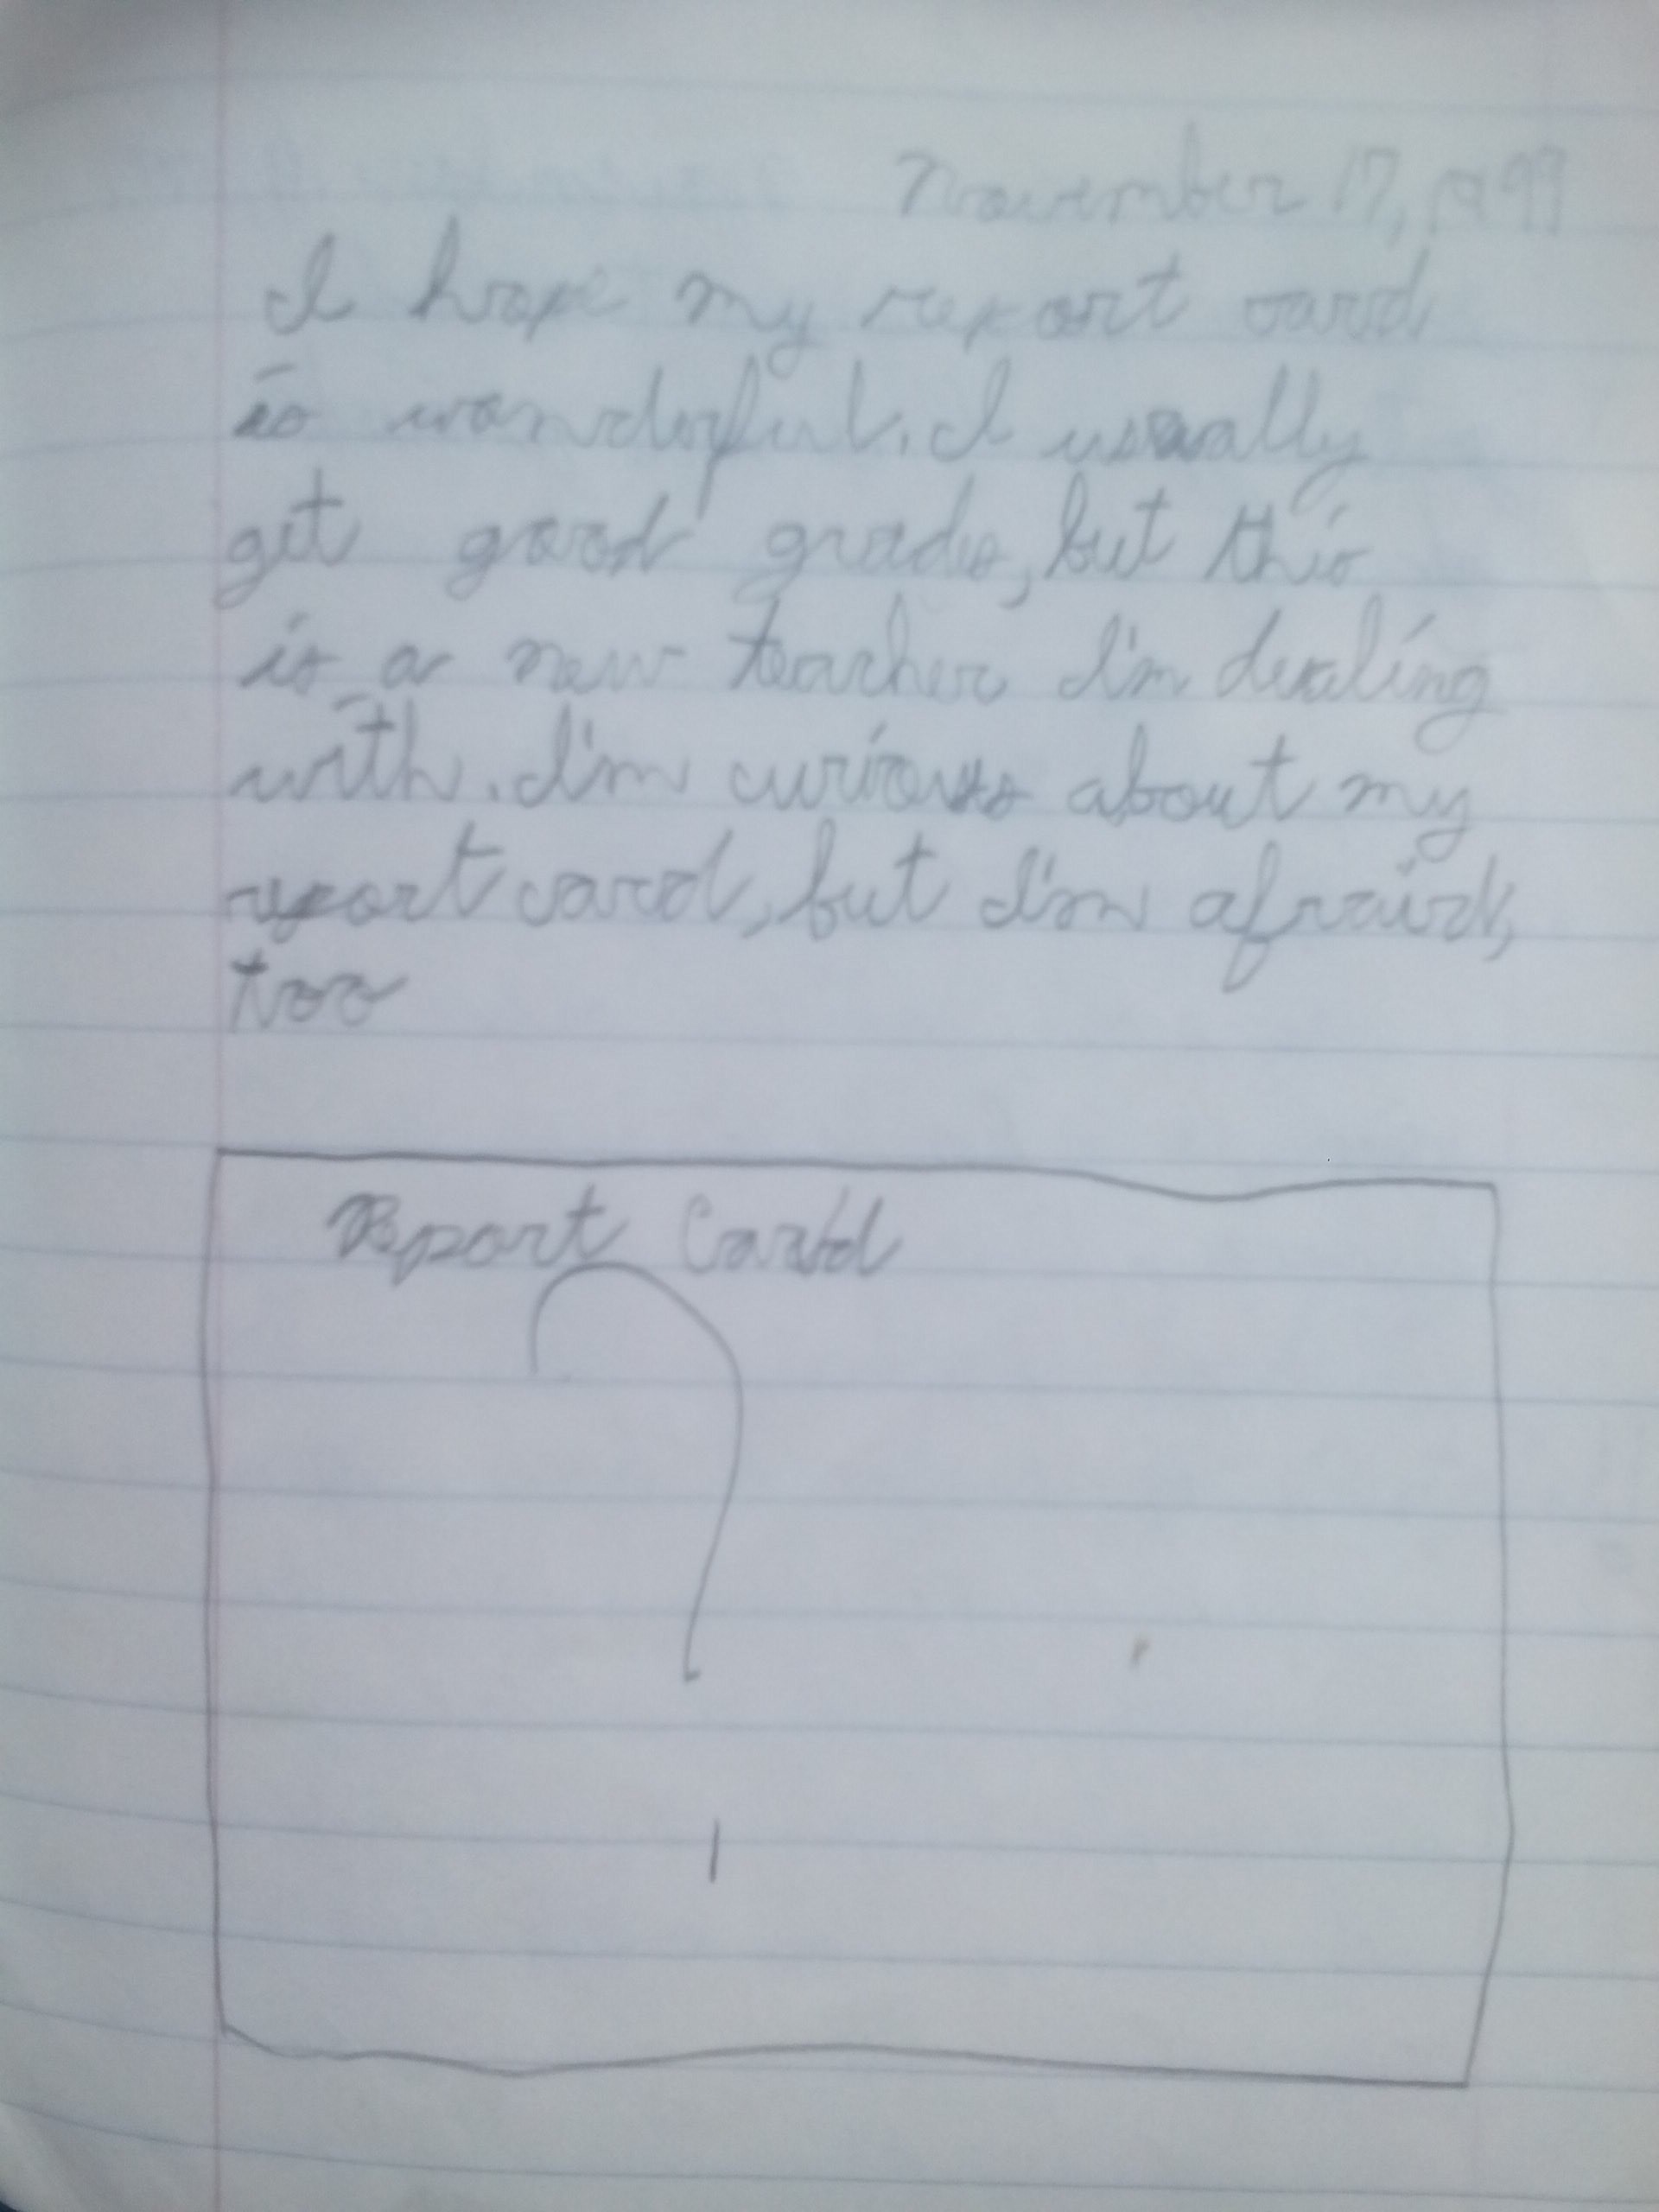 November 17, 1999
I hope my report card
is wonderful. I usually
get good grades, but this
is a new teacher I'm dealing
with. I'm curious about my
report card, but I'm afraid,
too
Report Card
?